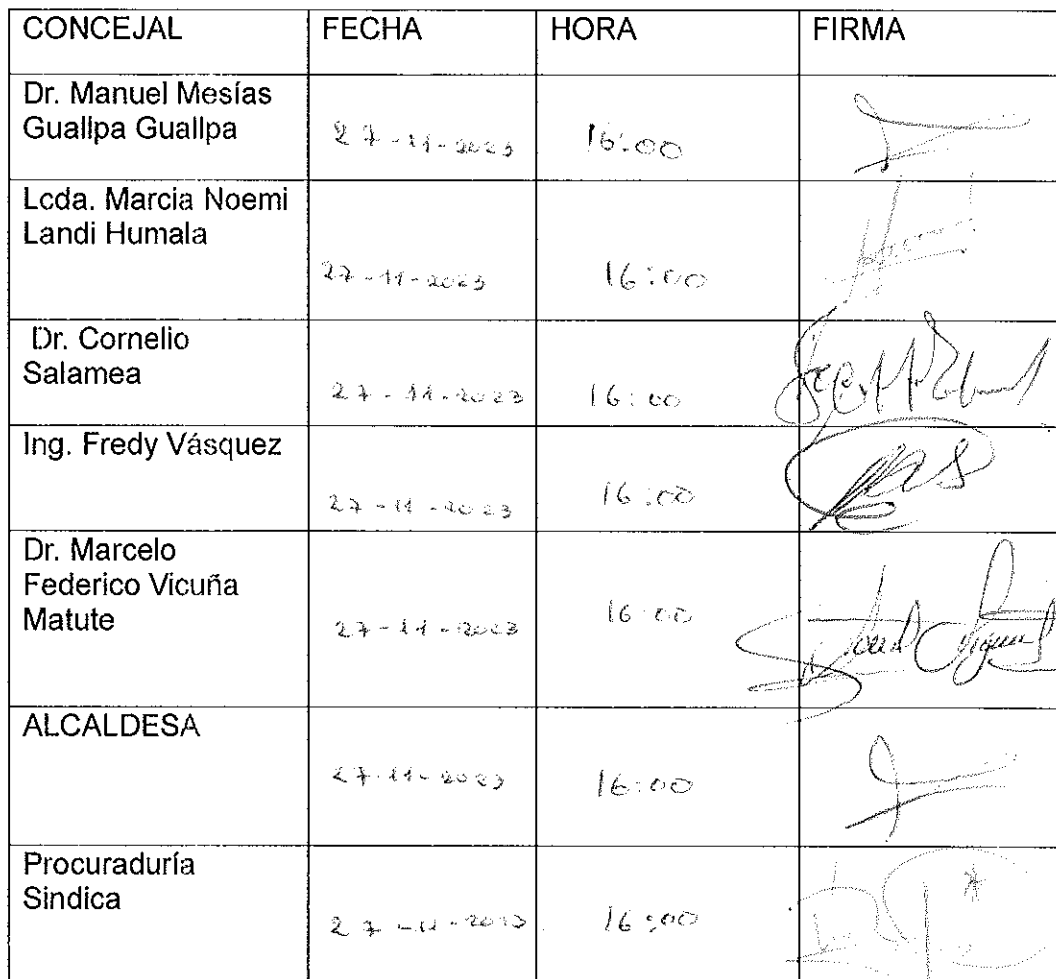 CONCEJAL FECHA HORA FIRMA
Dr. Manuel Mesías
Guallpa Guallpa 27-11-2023 16:00
Lcda. Marcia Noemi
Landi Humala
27-11-2023 16:00
Dr. Cornelio
Salamea 27-11-2023 16:00
Ing. Fredy Vásquez
27-11-2023 16:00
Dr. Marcelo
Federico Vicuña
Matute 27-11-2023 16:00
ALCALDESA
27-11-2023 16:00
Procuraduría
Sindica
27-11-2023 16:00